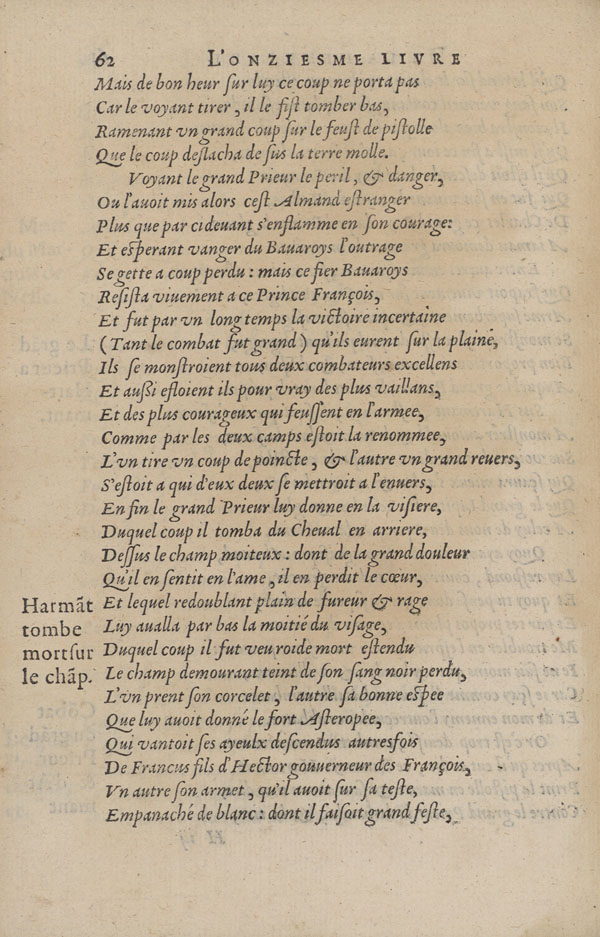 62 L'ONZIESME LIVRE
Mais de bon heur ſur luy ce coup ne porta pas
Car le voyant tirer, il le fiſt tomber bas,
Ramenant vn grand coup ſur le feuſt de piſtolle
Que le coup deſlacha de ſus la terre molle.
Voyant le grand Prieur le peril, & danger,
Ou l'auoit mis alors ceſt Almand eſtranger
Plus que par cideuant s'enflamme en ſon courage:
Et eſperant vanger du Bauaroys l'outrage
Se gette a coup perdu: mais ce fier Bauaroys
Reſiſta viuement a ce Prince François,
Et fut par vn long temps la victoire incertaine
(Tant le combat fut grand) qu'ils eurent ſur la plaine,
Ils ſe monſtroient tous deux combateurs excellens
Et auſſi eſtoient ils pour vray des plus vaillans,
Et des plus courageux qui feuſſent en l'armee,
Comme par les deux camps eſtoit la renommee,
L'vn tire vn coup de poincte, & l'autre vn grand reuers,
S'eſtoit a qui d'eux deux ſe mettroit a l'enuers,
En fin le grand Prieur luy donne en la viſiere,
Duquel coup il tomba du Cheual en arriere,
Deſſus le champ moiteux: dont de la grand douleur
Qu'il en ſentit en l'ame, il en perdit le cœur,
Et lequel redoublant plain de fureur & rage
Luy aualla par bas la moitié du viſage,
Duquel coup il fut veu roide mort eſtendu
Le champ demourant teint de ſon ſang noir perdu,
L'vn prent ſon corcelet, l'autre ſa bonne eſpee
Que luy auoit donné le fort Aſteropee,
Qui vantoit ſes ayeulx deſcendus autresfois
De Francus fils d'Hector gouuerneur des François,
Vn autre ſon armet, qu'il auoit ſur ſa teſte,
Empanaché de blanc: dont il faiſoit grand feſte,
Harmãt
tombe
mort ſur
le chãp.